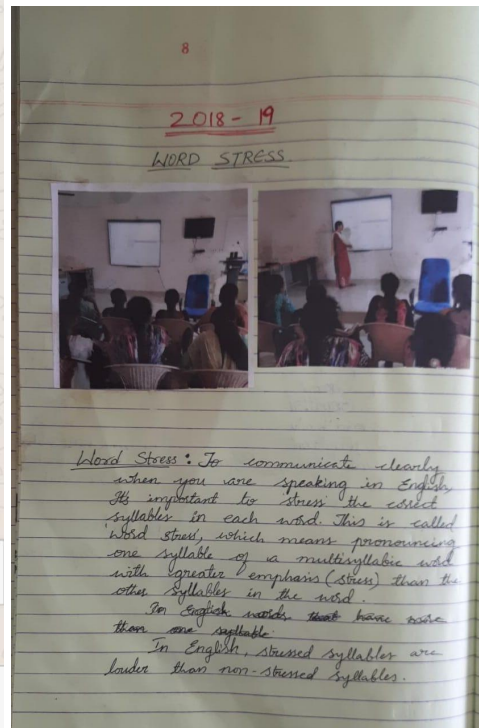 8
2018-19
WORD STRESS.
Word Stress: To communicate clearly
when you are speaking in English,
It's important to stress the correct
syllables in each word. This is called
word stress, which means pronouncing
one syllable of a multisyllabic word
with greater emphasis (stress) than the
other syllables in the word.
In English words that have more
than one syllable.
In English, stressed syllables are
louder than non-stressed syllables.